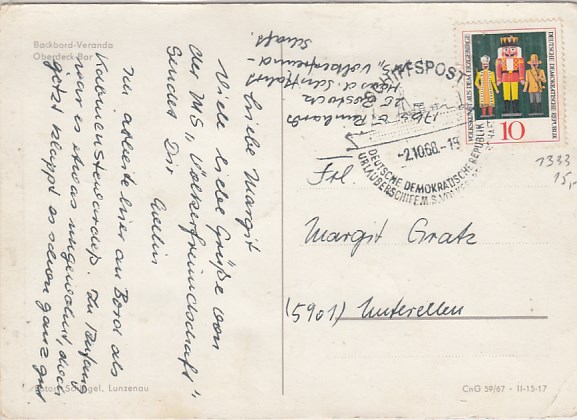 Backbord-Veranda
Oberdeck-Bar
Liebe Margit
Viele liebe Grüße von
der MS „Völkerfreundschaft"
sendet Dir
Ich arbeite hier an Bord als
Kabinenstewardeß. Im Anfang
war es etwas ungewohnt, doch
jetzt klappt es schon ganz gut
25 Rostock
Haus d. Schiffahrt
MS „Völkerfreund-
schaft"
SCHIFFSPOST
-2.10.68.-15
DEUTSCHE DEMOKRATISCHE REPUBLIK
URLAUBERSCHIFF M.S.
DEUTSCHE DEMOKRATISCHE REPUBLIK
10
1333
15,-
Frl.
Margit Gratz
(5901) Unterellen
Foto: Schlegel, Lunzenau
CnG 59/67 · II-15-17